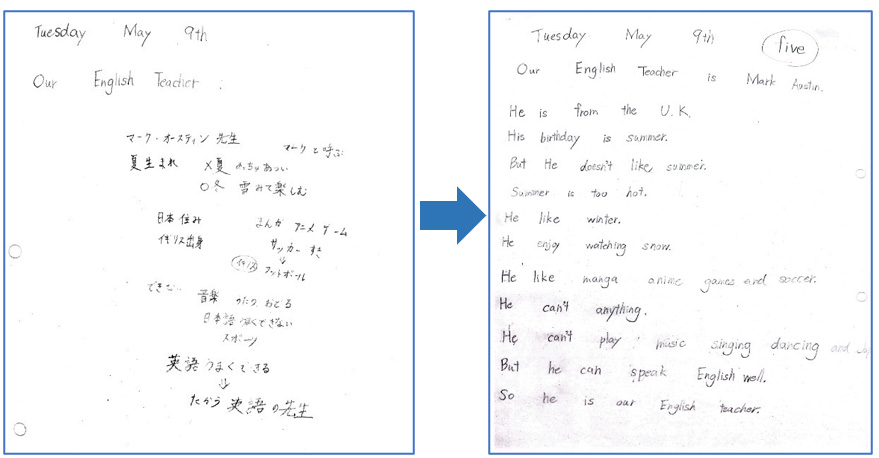 Tuesday May 9th
Our English Teacher :
マーク・オースティン 先生
マークと呼ぶ
夏生まれ ×夏 めっちゃあつい
○冬 雪みて楽しむ
日本住み まんが アニメ ゲーム
イギリス出身 サッカー すき
↓
イギリス フットボール
できない 音楽 うたう おどる
日本語 うまくできない
スポーツ
英語うまくできる
↓
だから 英語の先生
Tuesday May 9th
five
Our English Teacher is Mark Austin.
He is from the U.K.
His birthday is summer.
But He doesn't like summer.
Summer is too hot.
He like winter.
He enjoy watching snow.
He like manga anime games and soccer.
He can't anything.
He can't play music singing dancing and
But he can speak English well.
So he is our English teacher.